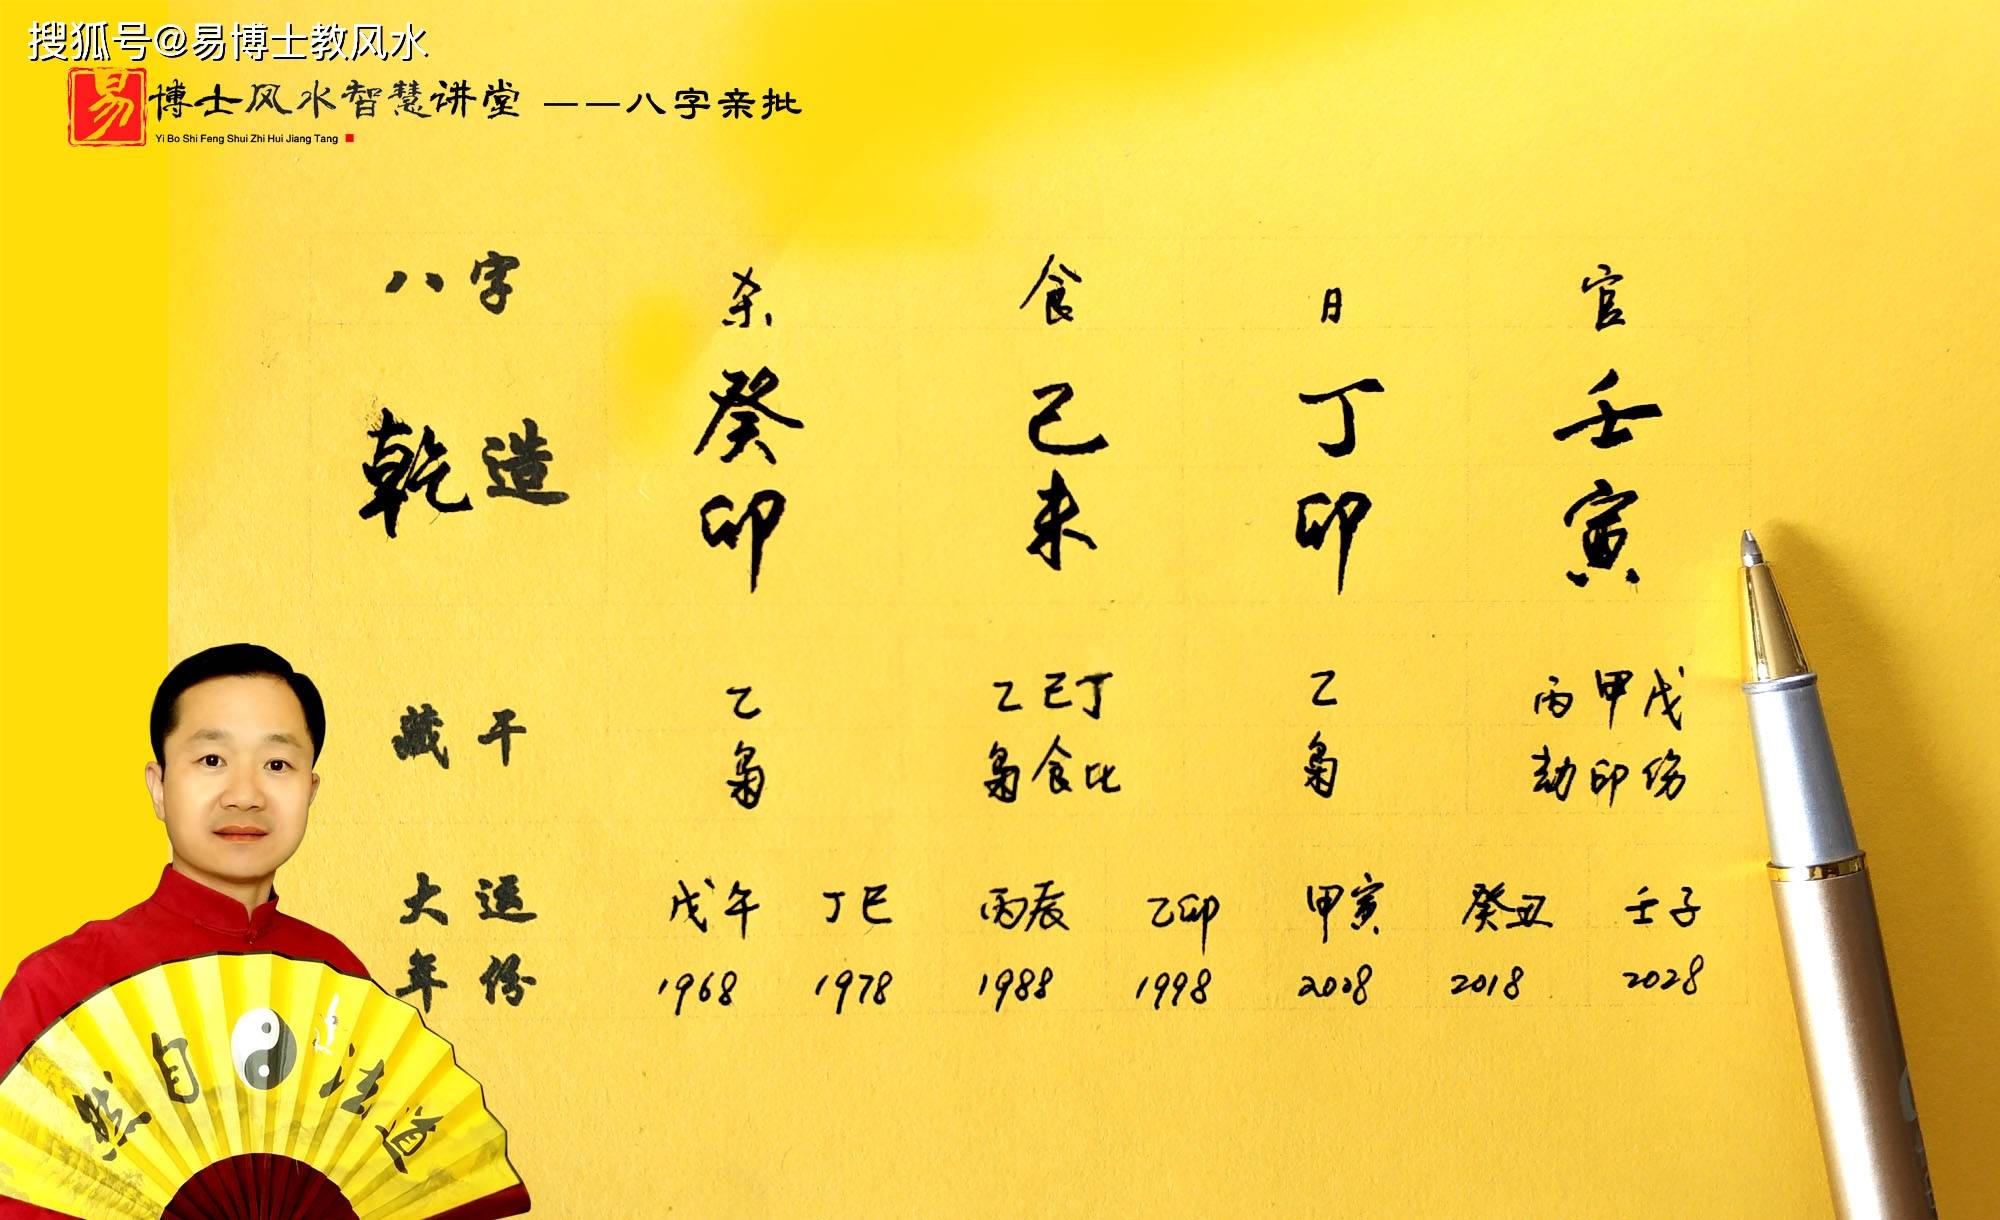 搜狐号@易博士教风水
易 博士风水智慧讲堂 ——八字亲批
Yi Bo Shi Feng Shui Zhi Hui Jiang Tang
八字 杀 食 日 官
乾造 癸 己 丁 壬
卯 未 卯 寅
藏干 乙 乙己丁 乙 丙甲戊
枭 枭食比 枭 劫印伤
大运 戊午 丁巳 丙辰 乙卯 甲寅 癸丑 壬子
年份 1968 1978 1988 1998 2008 2018 2028
然自法道